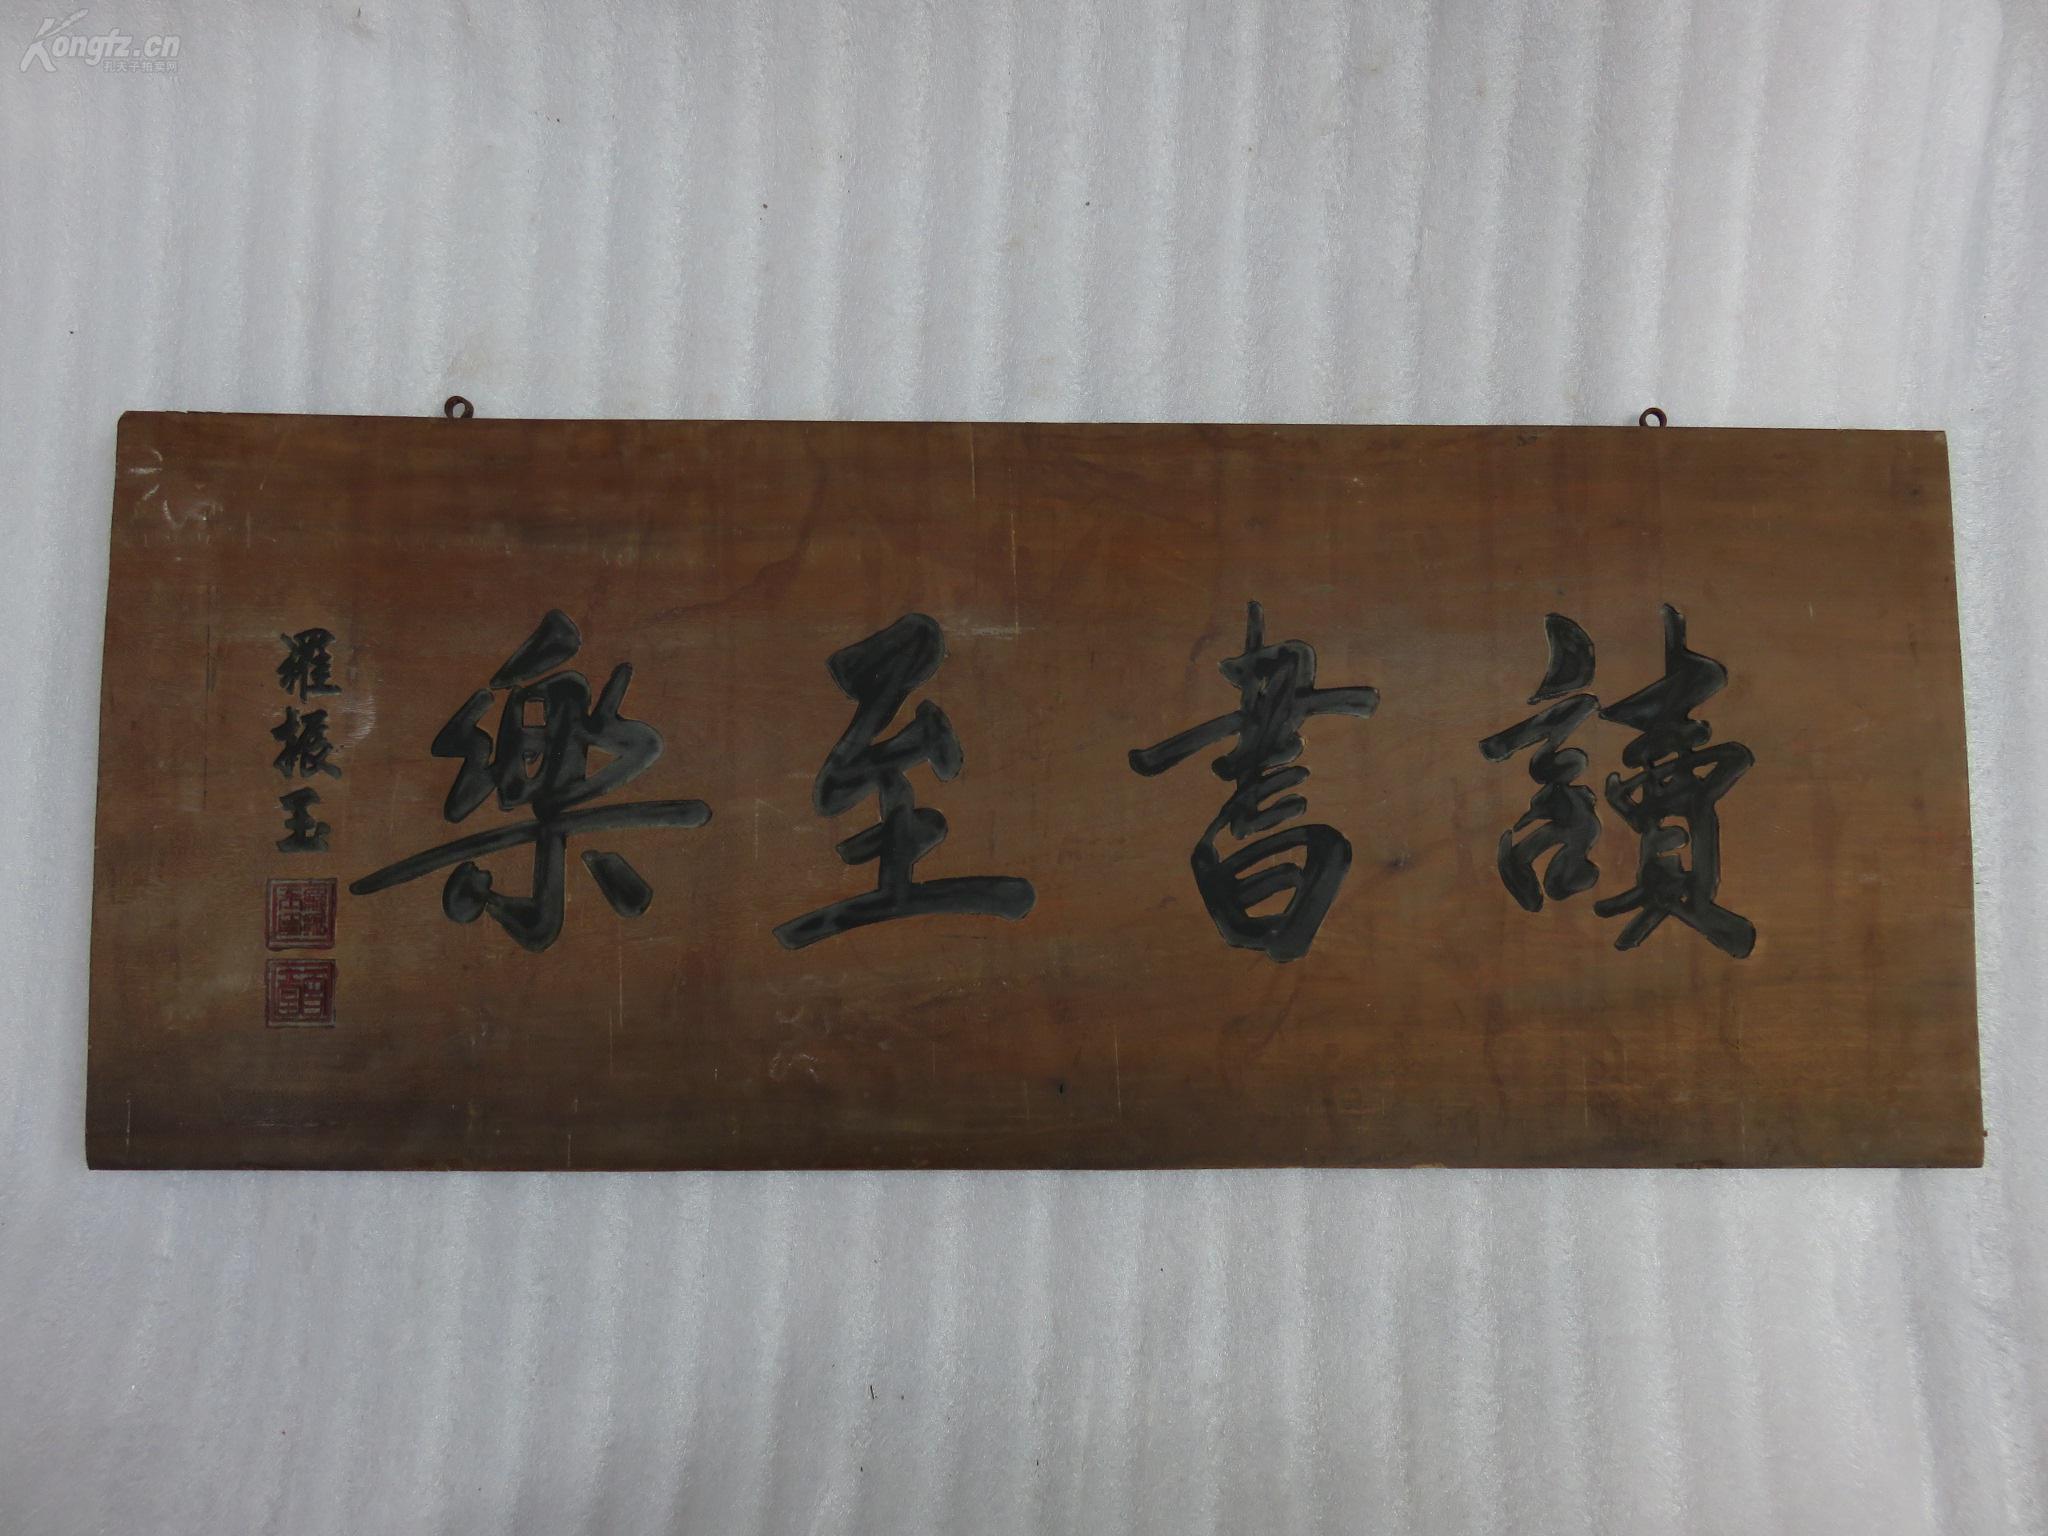 Kongfz.cn
孔夫子拍卖网
讀書至樂
羅振玉